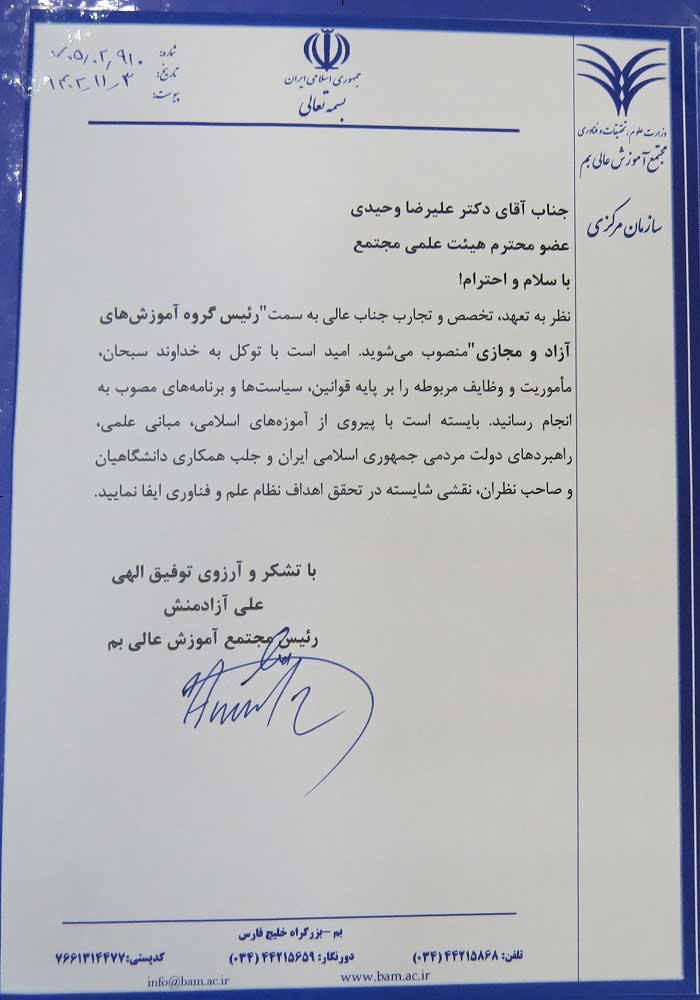 جمهوری اسلامی ایران
بسمه تعالی
شماره:
تاریخ: ۱۴۰۲/۱۱/۳
پیوست:
وزارت علوم، تحقیقات و فناوری
مجتمع آموزش عالی بم
سازمان مرکزی
جناب آقای دکتر علیرضا وحیدی
عضو محترم هیئت علمی مجتمع
با سلام و احترام!
نظر به تعهد، تخصص و تجارب جناب عالی به سمت"رئیس گروه آموزش‌های
آزاد و مجازی"منصوب می‌شوید. امید است با توکل به خداوند سبحان،
مأموریت و وظایف مربوطه را بر پایه قوانین، سیاست‌ها و برنامه‌های مصوب به
انجام رسانید. بایسته است با پیروی از آموزه‌های اسلامی، مبانی علمی،
راهبردهای دولت مردمی جمهوری اسلامی ایران و جلب همکاری دانشگاهیان
و صاحب نظران، نقشی شایسته در تحقق اهداف نظام علم و فناوری ایفا نمایید.
با تشکر و آرزوی توفیق الهی
علی آزادمنش
رئیس مجتمع آموزش عالی بم
بم -بزرگراه خلیج فارس
تلفن: ۴۴۲۱۵۸۶۸ (۰۳۴) دورنگار: ۴۴۲۱۵۶۵۹ (۰۳۴) کدپستی: ۷۶۶۱۳۱۴۴۷۷
www.bam.ac.ir info@bam.ac.ir